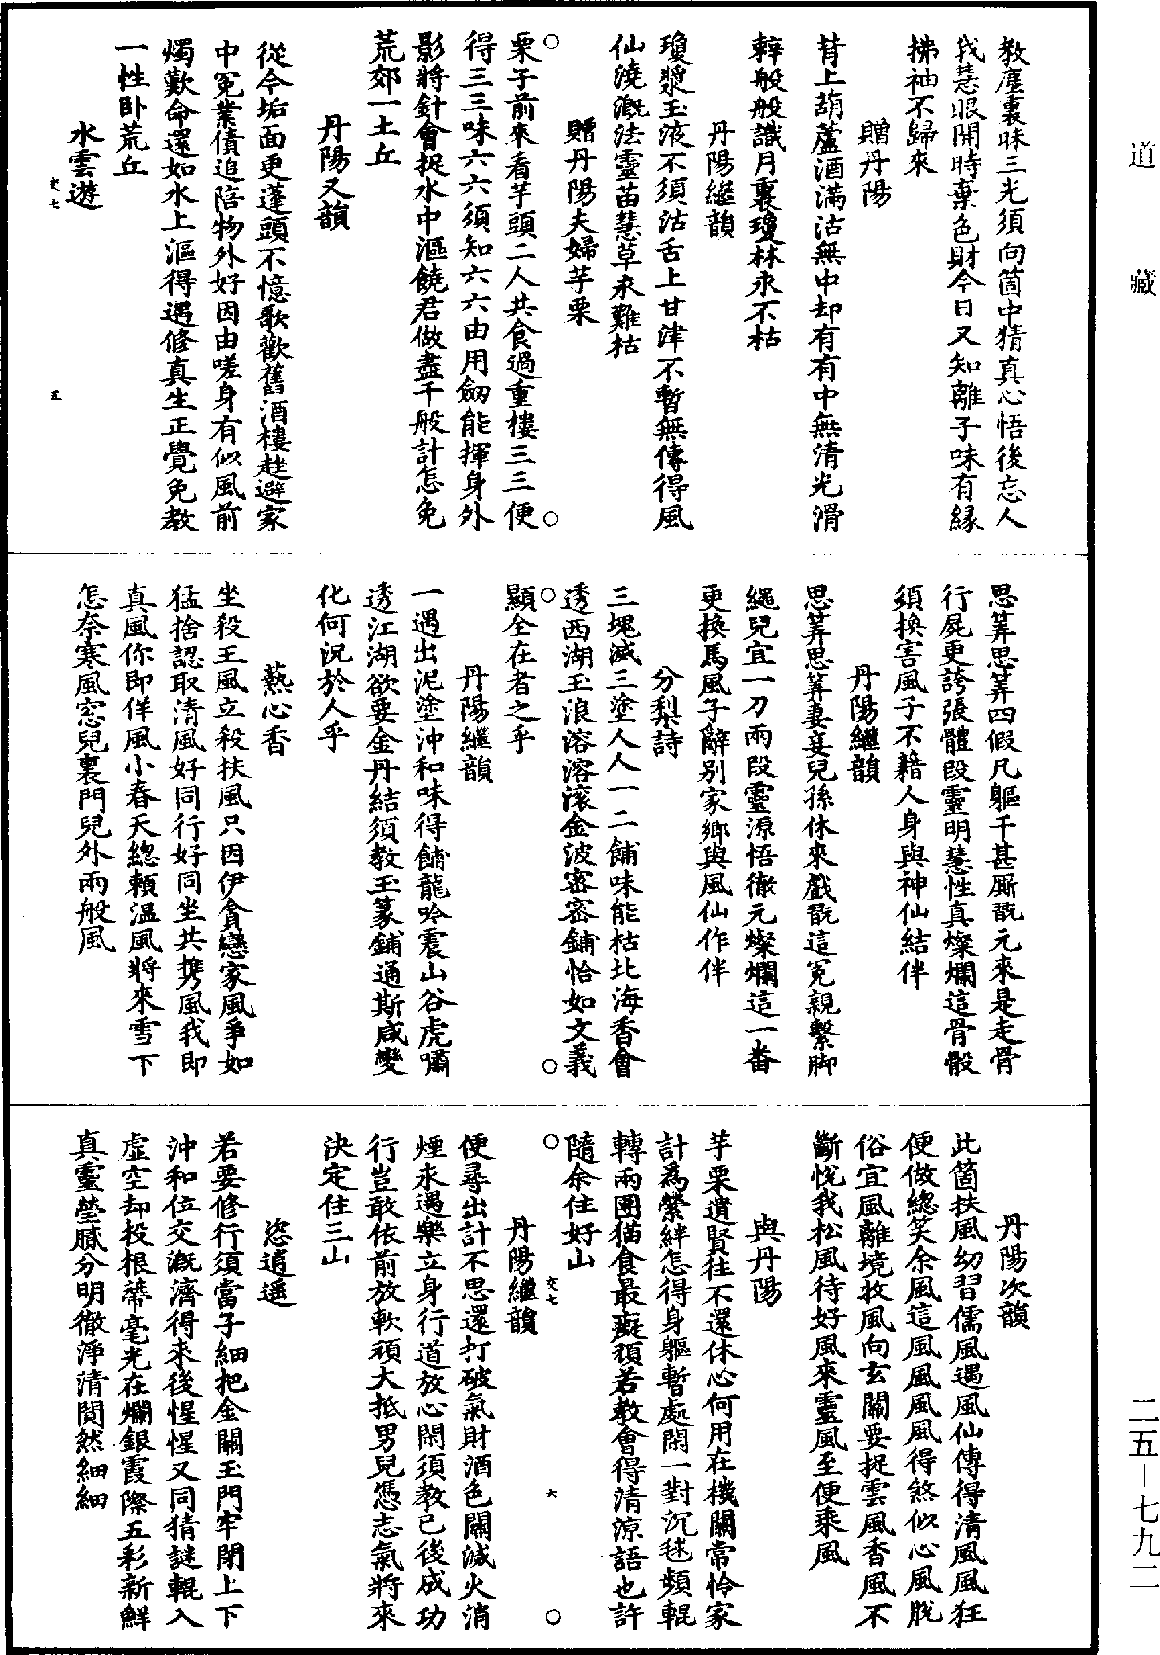 道藏
二五—七九二
教塵裏昧三光須向箇中猜真心悟後忘人
我慧眼開時棄色財今日又知離子味有緣
拂袖不歸來
贈丹陽
背上葫蘆酒滿沽無中却有有中無清光滑
辣般般識月裏瓊林永不枯
丹陽繼韻
瓊漿玉液不須沽舌上甘津不暫無傳得風
仙澆溉法靈苗慧草永難枯
贈丹陽夫婦芋栗
栗子前來看芋頭二人共食過重樓三三便
得三三味六六須知六六由用劒能揮身外
影將針會捉水中漚饒君做盡千般計怎免
荒郊一土丘
丹陽又韻
從今垢面更蓬頭不憶歌歡舊酒樓趖避家
中冤業債追陪物外好因由嗟身有似風前
燭歎命還如水上漚得遇修真生正覺免教
一性卧荒丘
水雲遊
交七 五
思筭思筭四假凡軀千甚厮翫元來是走骨
行屍更誇張體段靈明慧性真燦爛這骨骰
須換害風子不藉人身與神仙結伴
丹陽繼韻
思筭思筭妻妾兒孫休來戲翫這冤親繫脚
繩兒宜一刀兩段靈源悟徹元燦爛這一番
更換馬風子辭別家鄉與風仙作伴
分梨詩
三塊滅三塗人人一二餔味能枯北海香會
透西湖玉浪溶溶滚金波密密鋪恰如文義
顯全在者之乎
丹陽繼韻
一遇出泥塗沖和味得餔龍吟震山谷虎嘯
透江湖欲要金丹結須教玉篆鋪通斯咸變
化何況於人乎
爇心香
坐殺王風立殺扶風只因伊貪戀家風爭如
猛捨認取清風好同行好同坐共携風我即
真風你即佯風小春天總頼溫風將來雪下
怎奈寒風窓兒裏門兒外兩般風
丹陽次韻
此箇扶風幼習儒風遇風仙傳得清風風狂
便做總笑余風這風風風風得煞似心風脫
俗宜風離境投風向玄關要捉雲風香風不
斷悅我松風待好風來靈風至便乘風
與丹陽
芋栗遺賢往不還休心何用在機關常怜家
計為縈絆怎得身軀暫處閑一對沉毬頻輥
轉兩團猫食最癡頑若教會得清涼語也許
隨余住好山
交七 六
丹陽繼韻
便尋出計不思還打破氣財酒色關滅火消
煙永遇樂立身行道放心閑須教已後成功
行豈敢依前放軟頑大抵男兒憑志氣將來
決定住三山
恣逍遥
若要修行須當子細把金關玉門牢閉上下
沖和位交溉濟得來後惺惺又同猜謎輥入
虛空却投根蔕毫光在爛銀霞際五彩新鮮
真靈瑩膩分明徹淨清閒然細細